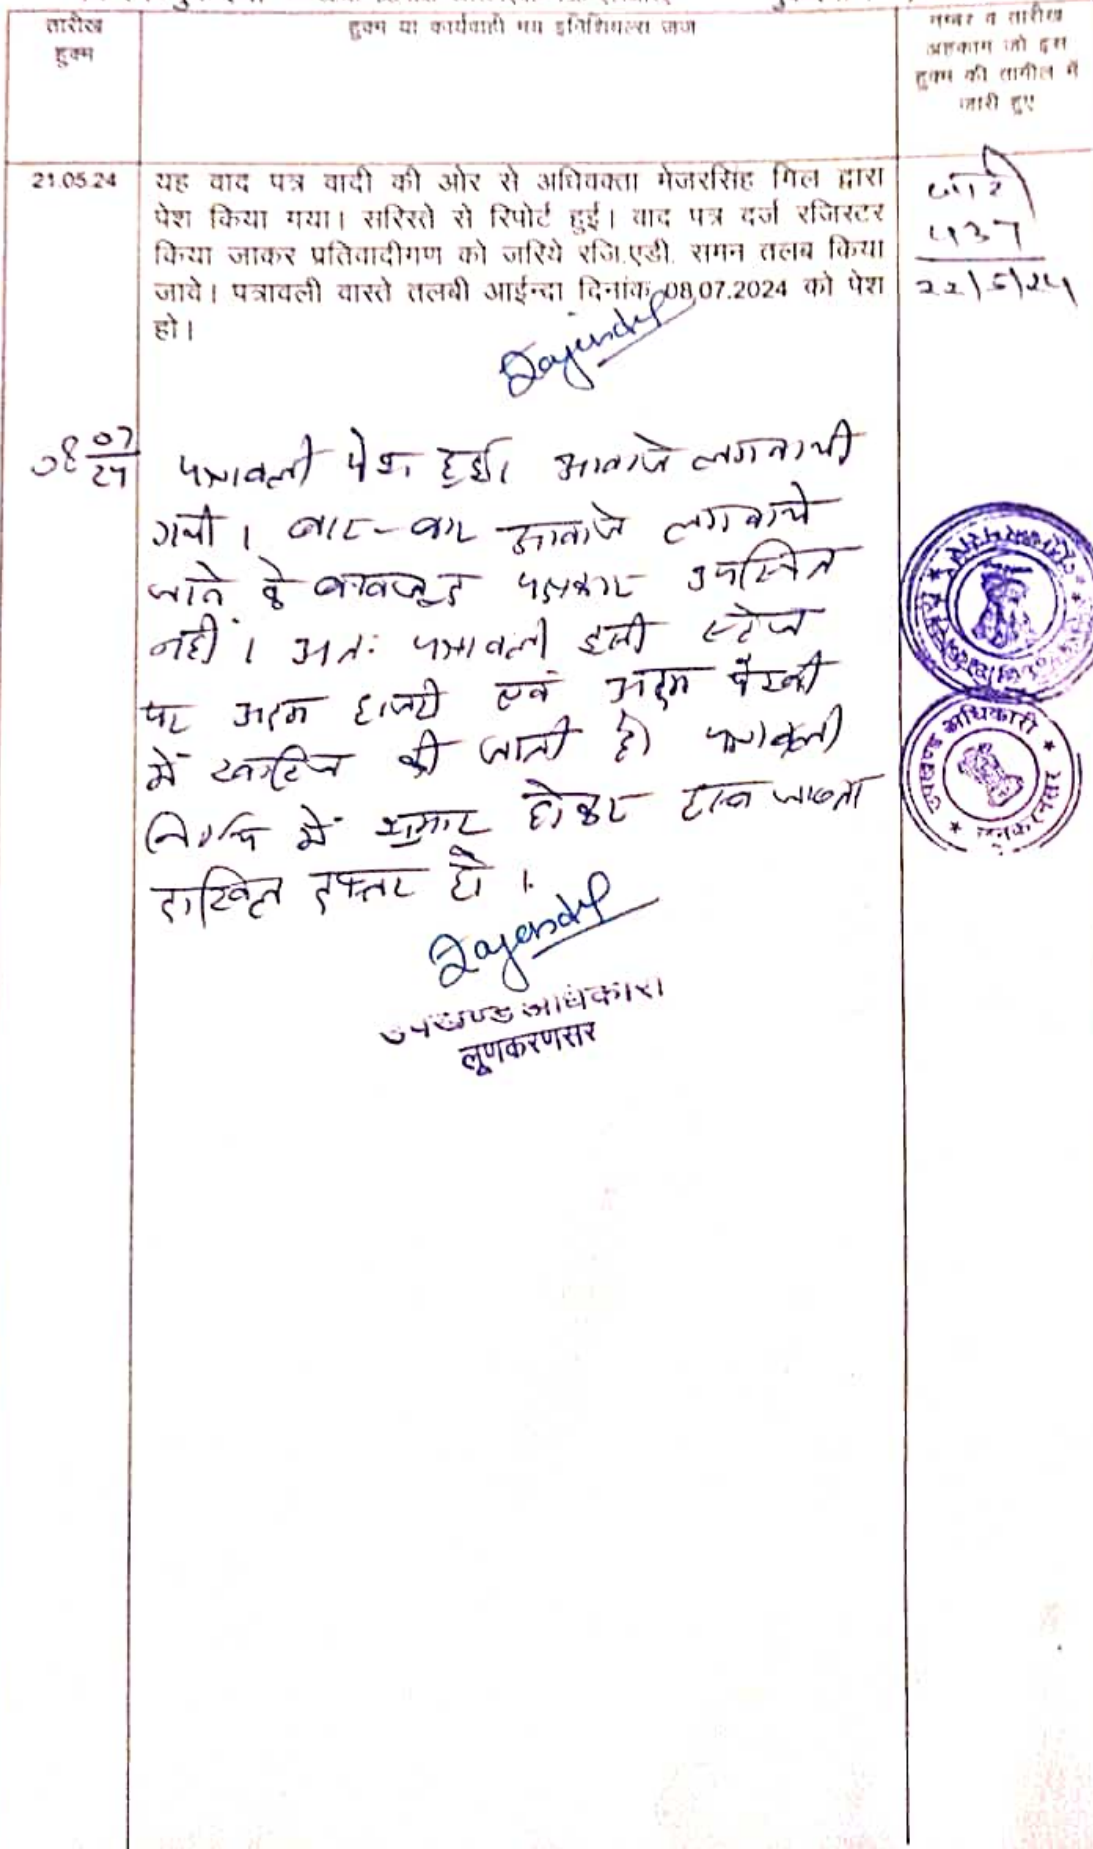 तारीख
हुक्म
हुक्म या कार्यवाही मय इनिशियल्स जज
नम्बर व तारीख
अहकाम जो इस
हुक्म की तामील में
जारी हुए
21.05.24
यह वाद पत्र वादी की ओर से अधिवक्ता मेजरसिंह गिल द्वारा
पेश किया गया। सरिस्ते से रिपोर्ट हुई। वाद पत्र दर्ज रजिस्टर
किया जाकर प्रतिवादीगण को जरिये रजि.एडी. समन तलब किया
जावे। पत्रावली वास्ते तलबी आईन्दा दिनांक 08.07.2024 को पेश
हो।
जारी
437
22/5/24
Rajendra
08 07/24
पत्रावली पेश हुई। आवाजे लगवायी
गयी। बार-बार आवाजे लगवाये
जाने के बावजूद पक्षकार उपस्थित
नहीं। अतः पत्रावली इसी स्टेज
पर अदम हाजरी एवं अदम पैरवी
में खारिज की जाती है। पत्रावली
में शुमार होकर बाद जाब्ता
दाखिल दफ्तर हो।
Rajendra
उपखण्ड अधिकारी
लूणकरणसर
उपखण्ड अधिकारी
लूनकरनसर